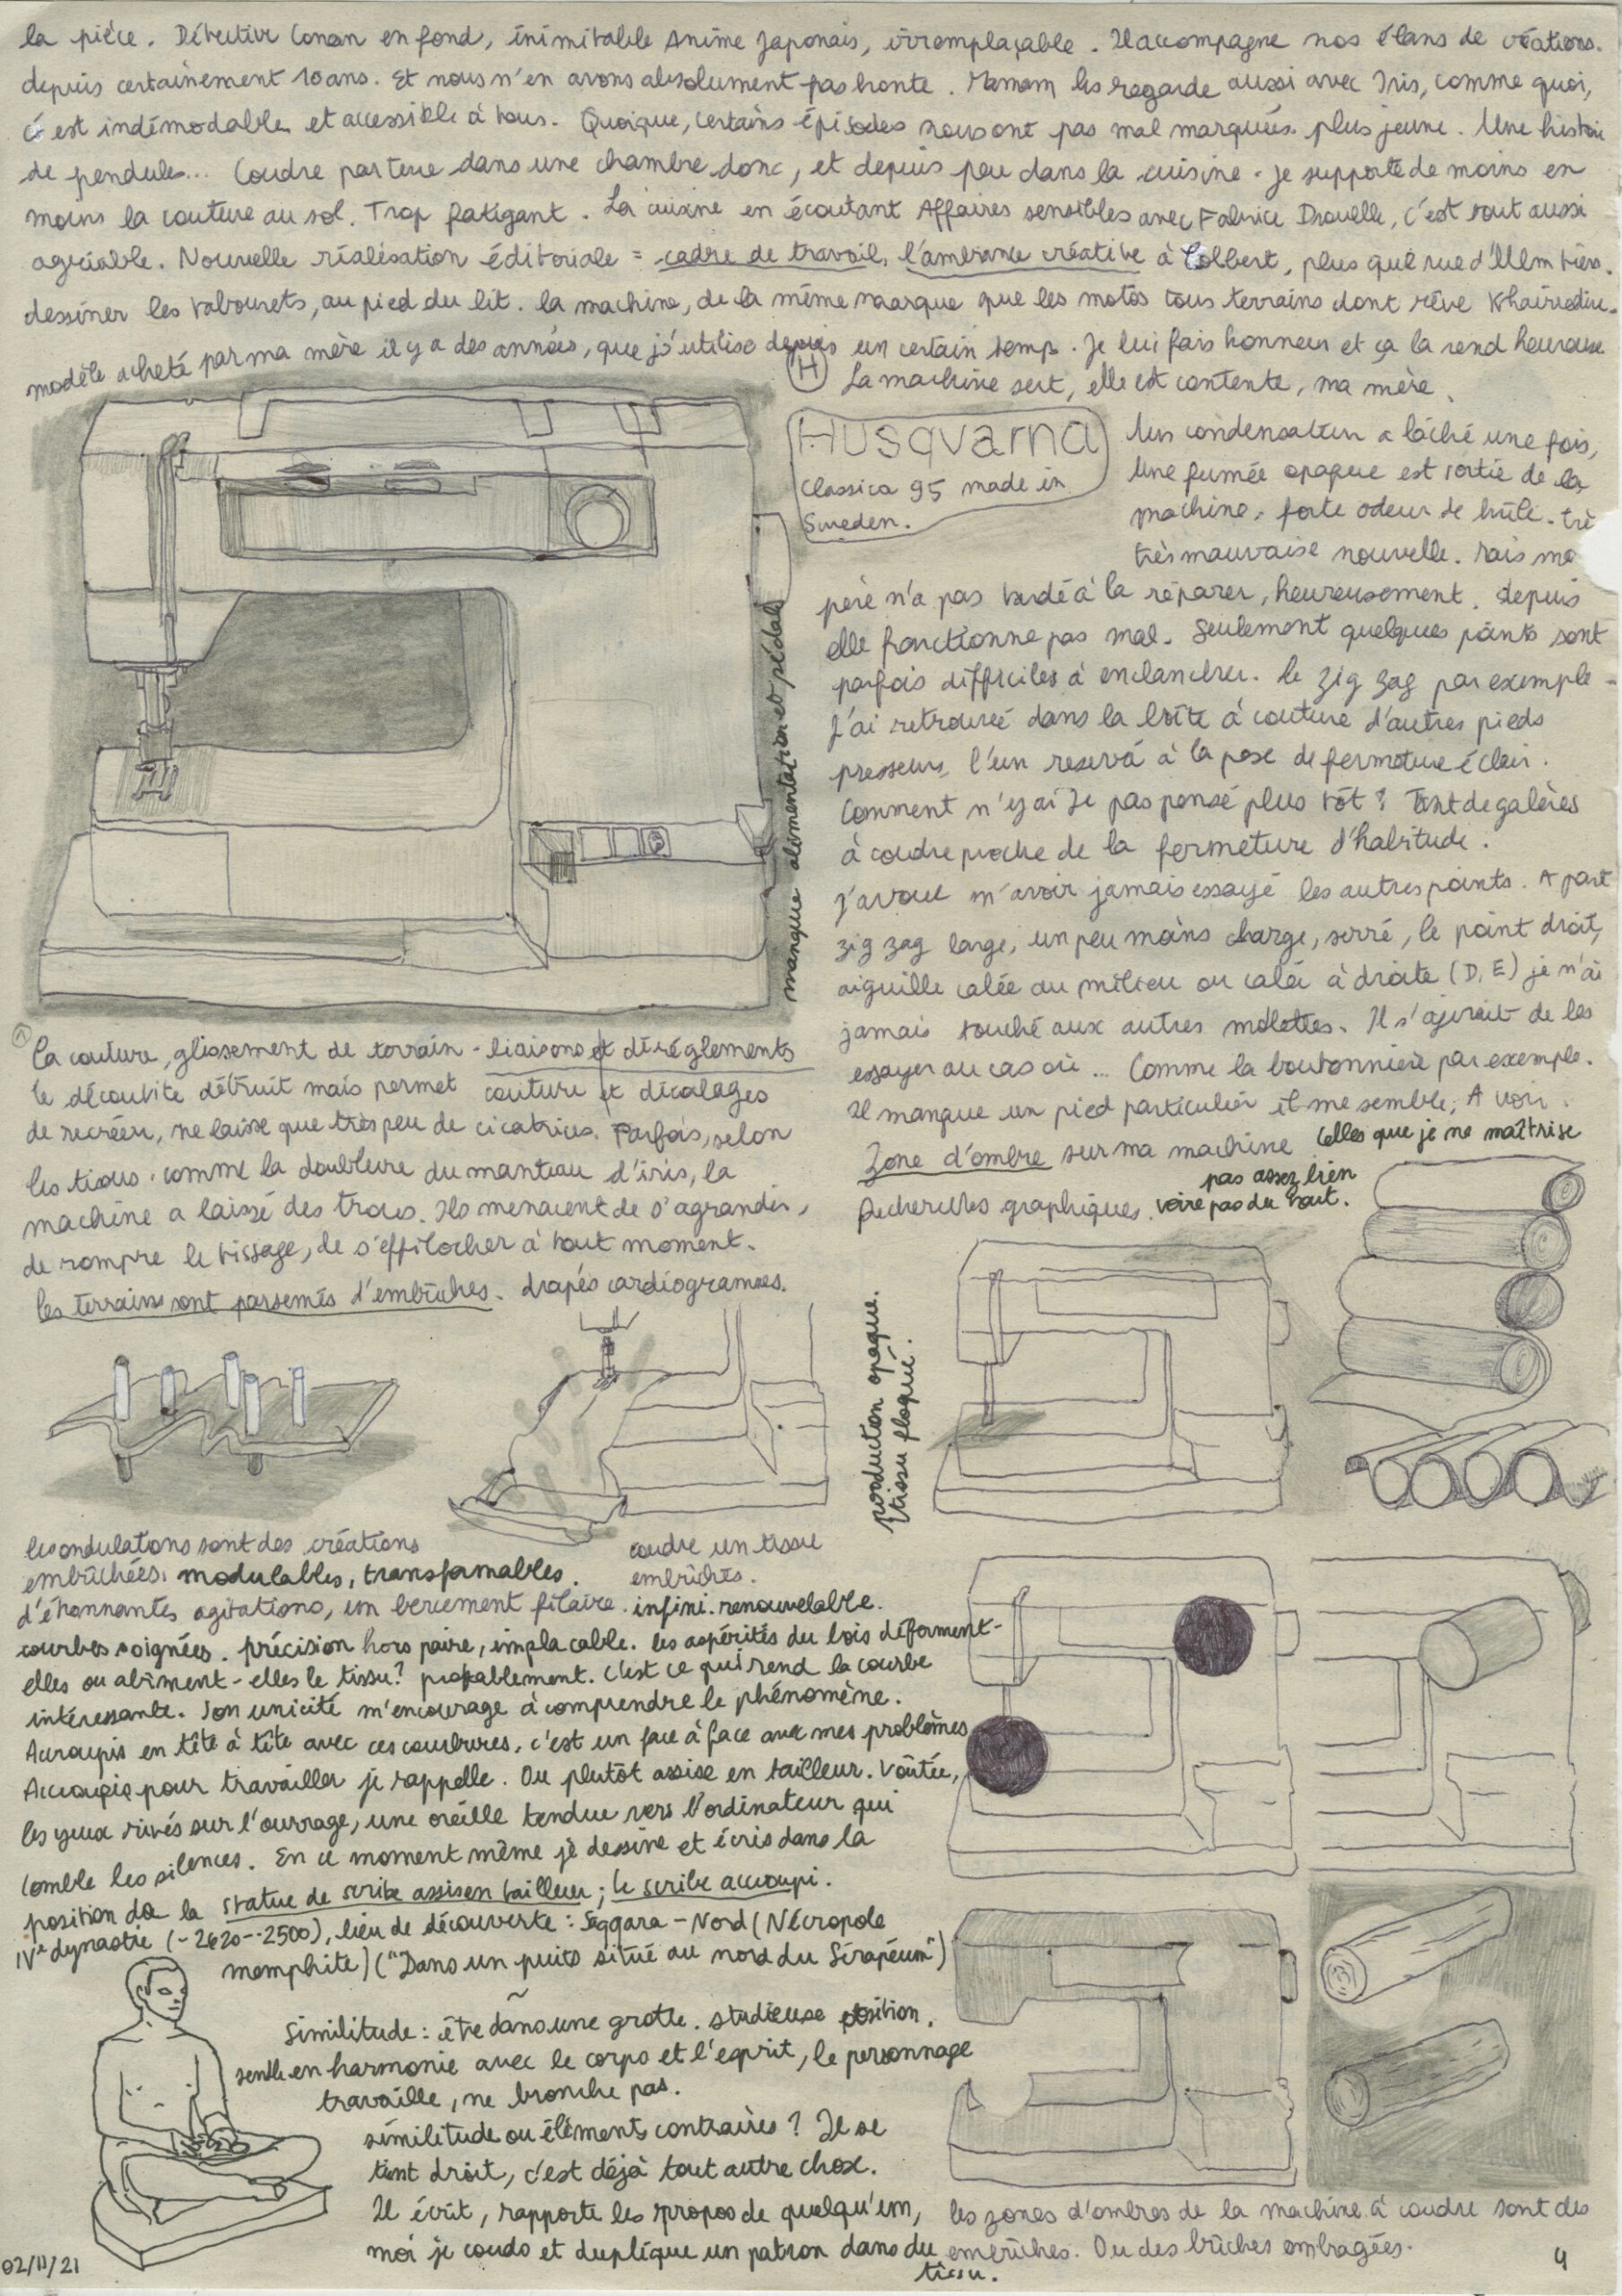 la pièce. Détective Conan en fond, inimitable Anime Japonais, irremplaçable. Il accompagne nos élans de créations.
depuis certainement 10 ans. Et nous n'en avons absolument pas honte. Maman les regarde aussi avec Iris, comme quoi,
c'est indémodable et accessible à tous. Quoique, certains épisodes nous ont pas mal marquées plus jeune. Une histoire
de pendules... Coudre par terre dans une chambre donc, et depuis peu dans la cuisine. Je supporte de moins en
moins la couture au sol. Trop fatigant. La cuisine en écoutant Affaires sensibles avec Fabrice Drouelle, c'est tout aussi
agréable. Nouvelle réalisation éditoriale = cadre de travail, l'ambiance créative à Colbert, plus que rue d'Ulm
dessiner les tabourets, au pied du lit. la machine, de la même marque que les motos tous terrains dont rêve Khaireddine.
modèle acheté par ma mère il y a des années, que j'utilise depuis un certain temps. Je lui fais honneur et ça la rend heureuse
(H) La machine sert, elle est contente, ma mère.
Husqvarna
Classica 95 made in
Sweden.
Un condensateur a lâché une fois,
Une fumée opaque est sortie de la
machine, forte odeur de brûlé. trè
très mauvaise nouvelle. Mais mo
père n'a pas tardé à la réparer, heureusement. Depuis
elle fonctionne pas mal. Seulement quelques points sont
parfois difficiles à enclancher. le zig zag par exemple -
J'ai retrouvé dans la boîte à couture d'autres pieds
presseurs, l'un reservé à la pose de fermeture éclair.
Comment n'y ai je pas pensé plus tôt ? Tant de galères
à coudre proche de la fermeture d'habitude.
J'avoue n'avoir jamais essayé les autres points. A part
zig zag large, un peu moins large, serré, le point droit,
aiguille calée au milieu ou calée à droite (D, E) je n'ai
jamais touché aux autres molettes. Il s'agirait de les
essayer au cas où ... Comme la boutonnière par exemple.
Il manque un pied particulier il me semble, A voir.
Zone d'ombre sur ma machine. Celles que je ne maîtrise
pas assez bien
voire pas du tout.
Recherches graphiques.
manque alimentation et pédale
La couture, glissement de terrain - liaisons et déréglements
Le découvite détruit mais permet couture et décalages
de recréer, ne laisse que très peu de cicatrices. Parfois, selon
les tissus. comme la doublure du manteau d'iris, la
machine a laissé des trous. Ils menacent de s'agrandir,
de rompre le tissage, de s'effilocher à tout moment.
les terrains sont parsemés d'embûches. drapés cardiogrammes.
production opaque.
tissu floqué.
les ondulations sont des créations
embûchées, modulables, transformables.
coudre un tissu
embûches.
d'étonnantes agitations, un bercement filaire. infini. renouvelable.
courbes soignées. précision hors paire, implacable. les aspérités du bois déforment-
elles ou abîment-elles le tissu? probablement. c'est ce qui rend la courbe
intéressante. Son unicité m'encourage à comprendre le phénomène.
Accroupis en tête à tête avec ces courbures, c'est un face à face avec mes problèmes
Accroupie pour travailler je rappelle. Ou plutôt assise en tailleur. Voûtée,
les yeux rivés sur l'ouvrage, une oreille tendue vers l'ordinateur qui
comble les silences. En ce moment même je dessine et écris dans la
position de la statue de scribe assis en tailleur ; le scribe accroupi.
IVe dynastie (-2620--2500), lieu de découverte : Saqqara - Nord (Nécropole
memphite) ("Dans un puits situé au nord du Sérapéum")
~
Similitude : être dans une grotte. studieuse position.
semble en harmonie avec le corps et l'esprit, le personnage
travaille, ne bronche pas.
similitude ou éléments contraires ? Il se
tient droit, c'est déjà tout autre chose.
Il écrit, rapporte les propos de quelqu'un,
moi je couds et duplique un patron dans du
tissu.
les zones d'ombres de la machine à coudre sont des
embûches. Ou des bûches ombragées.
02/11/21
4